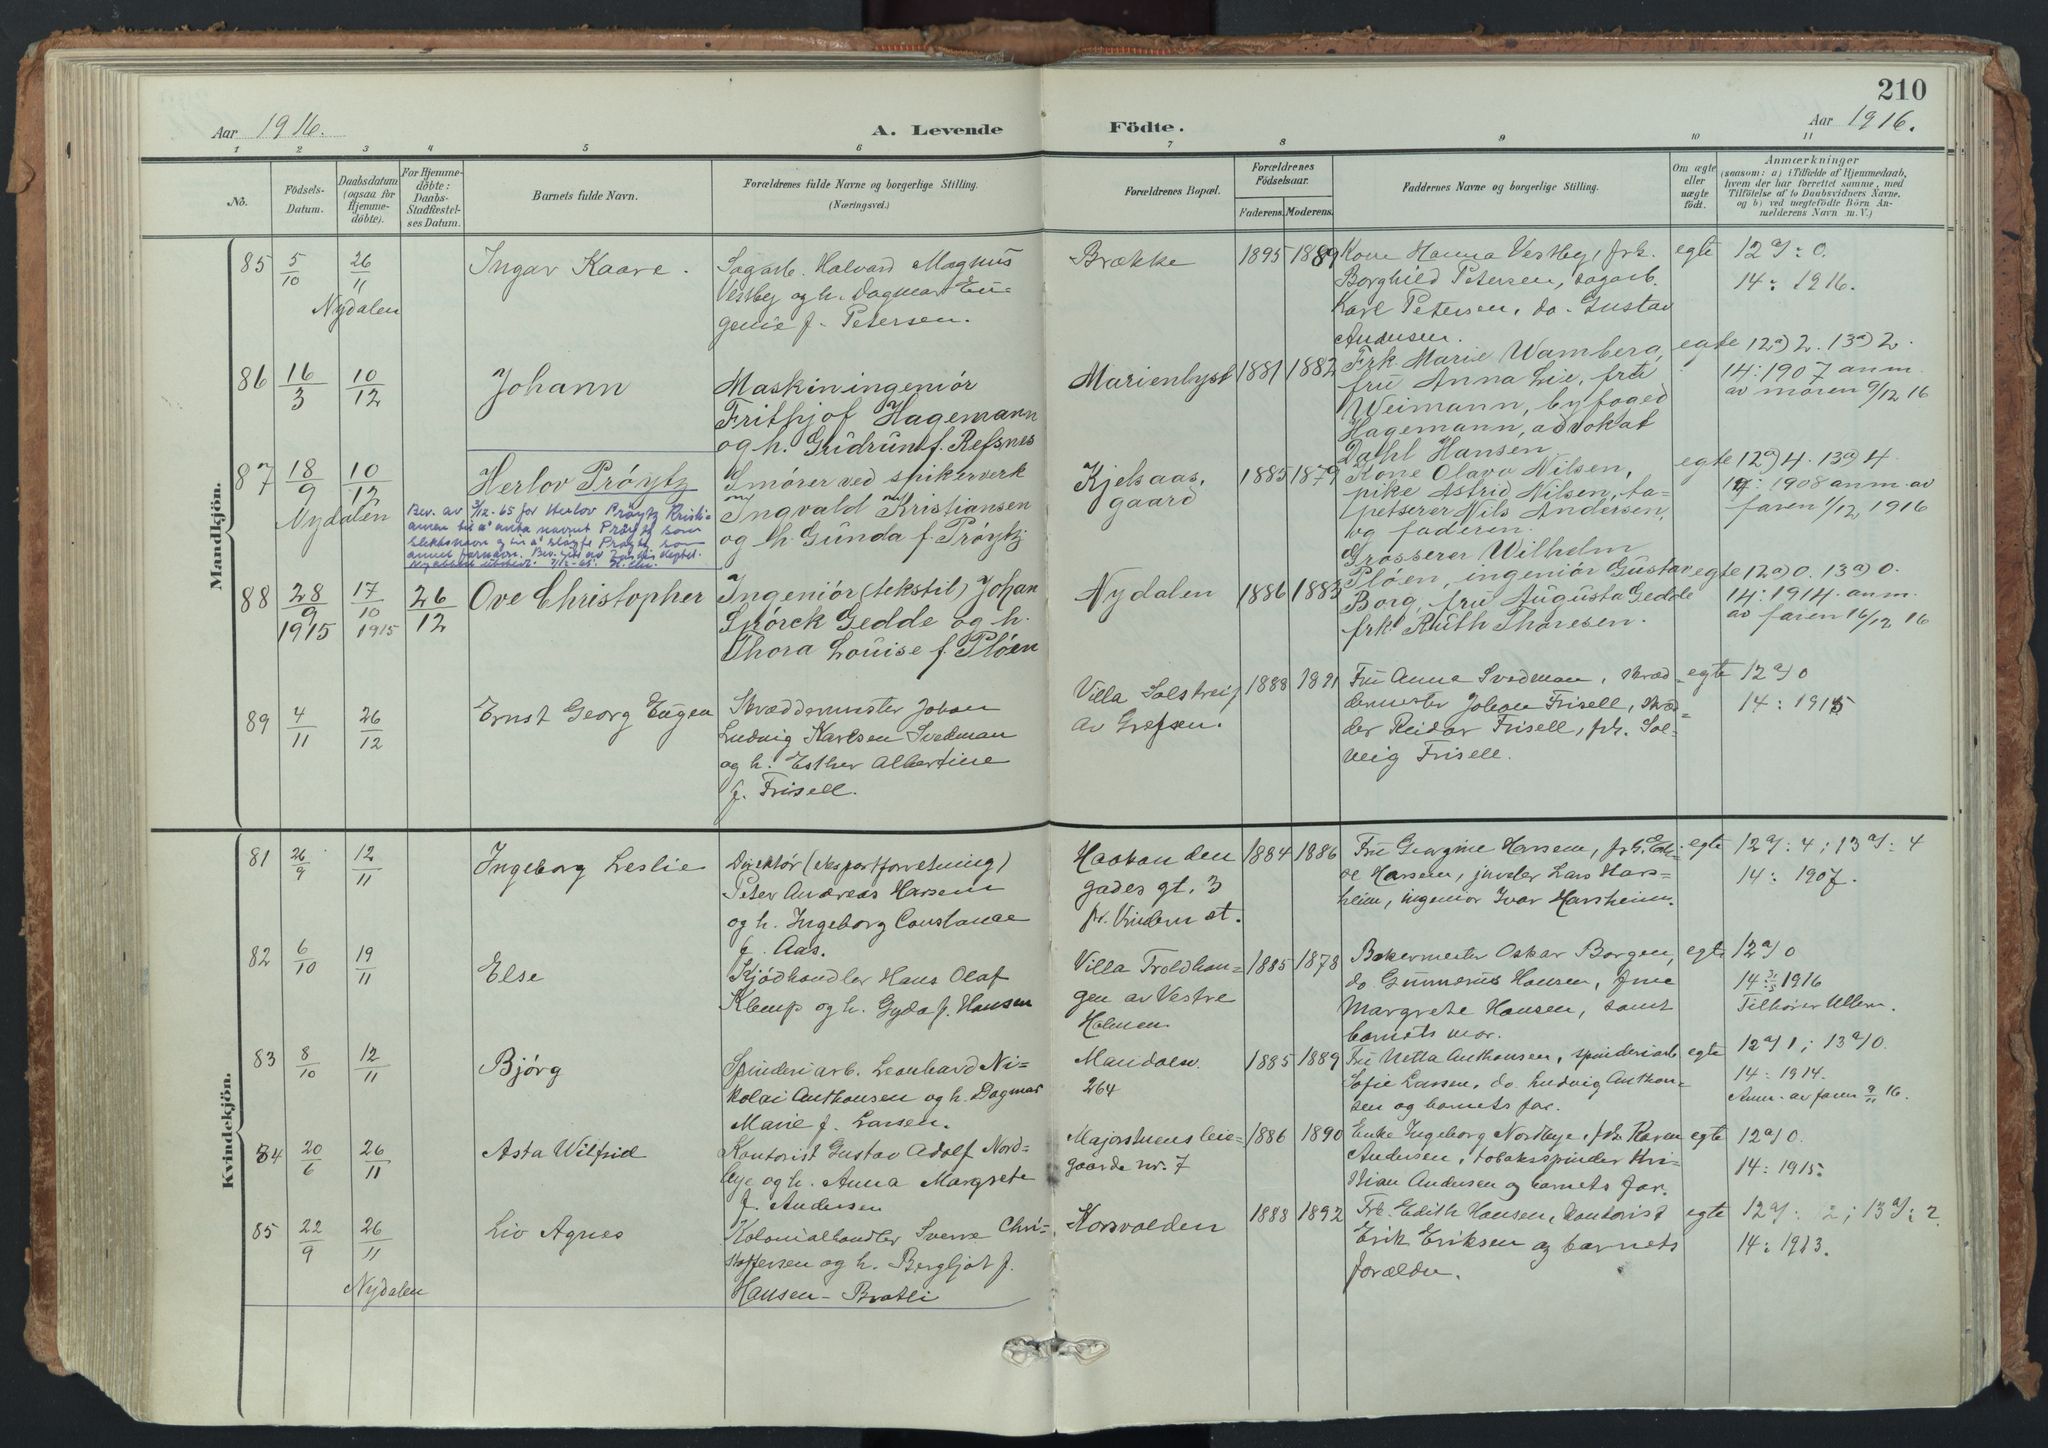 210
Aar 1916.
A. Levende Födte.
Aar 1916.
1 2 3 4 5 6 7 8 9 10 11
No.
Födsels-Datum.
Daabsdatum (ogsaa for Hjemme-döbte).
For Hjemme-döbte: Daabs-Stadfæstel-ses Datum.
Barnets fulde Navn.
Forældrenes fulde Navne og borgerlige Stilling.
(Næringsvei.)
Forældrenes Bopæl.
Forældrenes Födselsaar.
Faderens. Moderens.
Faddernes Navne og borgerlige Stilling.
Om ægte eller uægte födt.
Anmærkninger
(saasom: a) i Tilfælde af Hjemmedaab,
hvem der har forrettet samme, med
Tilföielse af to Daabsvidners Navne.
og b) ved uægtefödte Börn An-
melderens Navn m. V.)
Mandkjön.
85 5/10 26/11 Nydalen
Ingar Kaare.
Sagarb. Halvard Magnus
Vestby og h. Dagmar Eu-
genie f. Petersen.
Brække
1895 1889
Kone Hanna Vestby, frk.
Borghild Petersen, sagarb.
Karl Petersen, do. Gustav
Andersen.
egte
12 a): 0.
14: 1916.
86 16/3 10/12
Johann
Maskiningeniör
Frithjof Hagemann
og h. Gudrun f. Refsnes
Marienlyst
1881 1882
Frk. Marie Wamberg,
fru Anna Lie, fru
Weimann, byfoged
Hagemann, advokat
Dahl Hansen
egte
12 a) 2. 13 a) 2.
14: 1907 anm.
av moren 9/12 16
87 18/9 10/12 Nydalen
Herlov Pröytz
Bev. av 2/12-65 for Herlov Pröytz Kristi-
ansen til å anta navnet Pröytz som
slektsnavn og til å sløyfe Pröytz som
annet fornavn.
Smörer ved spikerverk
Ingvald Kristiansen
og h. Gunda f. Pröytz
Kjelsaas,
gaard
1885 1879
Kone Olava Nilsen,
pike Astrid Nilsen, ta-
petserer Nils Andersen,
og faderen.
egte
12 a) 4. 13 a) 4
14: 1908 anm. av
faren 1/12 1916
88 28/9 1915 17/10 1915 26/12
Ove Christopher
Ingeniör (tekstil) Johan
Störck Gedde og h.
Thora Louise f. Plöen
Nydalen
1886 1883
Grosserer Wilhelm
Plöen, ingeniör Gustav
Borg, fru Augusta Gedde
frk. Ruth Thoresen.
egte
12 a) 0. 13 a) 0.
14: 1914. anm.
av faren 16/12 16
89 4/11 26/12
Ernst Georg Eugen
Skræddermester Johan
Ludvig Karlsen Svedman
og h. Esther Albertine
f. Frisell.
Villa Solstreif
av Grefsen.
1888 1891
Fru Anna Svedman, skræd-
dermester Johan Frisell, skræd-
der Reidar Frisell, frk. Sol-
veig Frisell.
egte
12 a) 0
14: 1915
Kvindekjön.
81 26/9 12/11
Ingeborg Leslie
Direktör (eksportforretning)
Peter Andreas Harsem
og h. Ingeborg Constance
f. Aas.
Haakon den
godes gt. 3
pr. Vinderen st.
1884 1886
Fru Georgine Harsem,
Harsem, juveler Lars Hars-
heim, ingeniör Ivar Harsheim.
egte
12 a): 4; 13 a): 4
14: 1907.
82 6/10 19/11
Else
Kjödhandler Hans Olaf
Klemp og h. Gyda f. Hansen
Villa Troldhau-
gen av Vestre
Holmen.
1885 1878
Bakermester Oskar Borgen,
do. Gunnerius Hansen, frue
Margrete Hansen, samt
barnets mor.
egte
12 a) 0
14: 1916
Tilhörer Ullern.
83 8/10 12/11
Bjørg
Spinderiarb. Leonhard Ni-
kolai Anthonsen og h. Dagmar
Marie f. Larsen.
Maridalsv.
264
1885 1889
Fru Netta Anthonsen, spinderiarb.
Sofie Larsen, do. Ludvig Anthon-
sen og barnets far.
egte
12 a) 1; 13 a) 0.
14: 1914.
Anm. av faren 9/11 16.
84 20/6 26/11
Asta Wilfrid
Kontorist Gustav Adolf Nord-
bye og h. Anna Margrete
f. Andersen
Majorstuens leie-
gaarde nr. 7
1886 1890
Enke Ingeborg Nordbye, frk. Karen
Andersen, tobaksspinder Kri-
stian Andersen og barnets far.
egte
12 a) 0.
14: 1915.
85 22/9 26/11 Nydalen
Liv Agnes
Kolonialhandler Sverre Chri-
stoffersen og h. Bergljot f.
Hansen-Bratli
Korsvolden
1888 1892
Frk. Edith Hansen, kontorist
Erik Eriksen og barnets
forældre.
egte
12 a): 2; 13 a): 2
14: 1913.